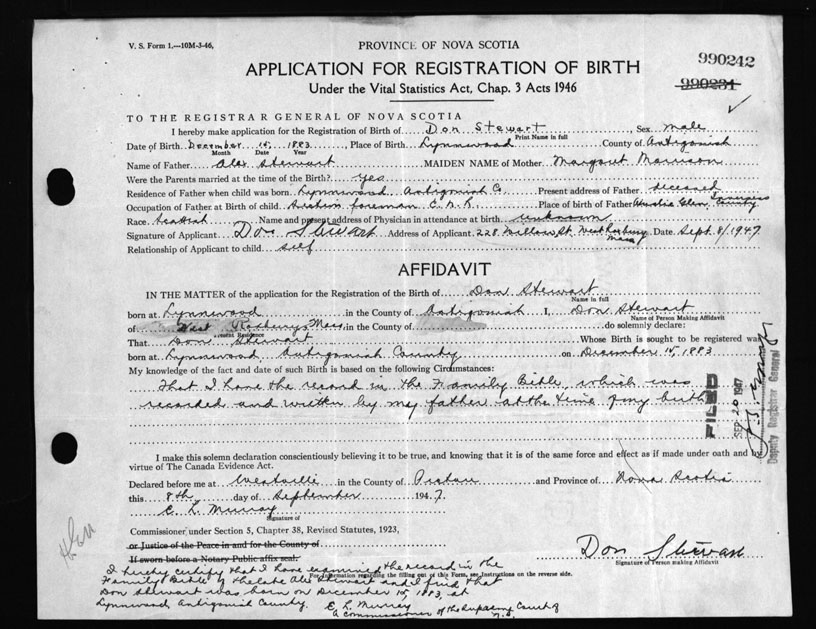 V. S. Form 1.—10M-3-46,
PROVINCE OF NOVA SCOTIA
990242
APPLICATION FOR REGISTRATION OF BIRTH
990231
Under the Vital Statistics Act, Chap. 3 Acts 1946
TO THE REGISTRAR GENERAL OF NOVA SCOTIA
I hereby make application for the Registration of Birth of Don Stewart, Sex male
Print Name in full
Date of Birth December 15, 1883, Place of Birth Lynnwood County of Antigonish
Month Date Year
Name of Father Alex Stewart MAIDEN NAME of Mother Margaret Morrison
Were the Parents married at the time of the Birth? yes
Residence of Father when child was born Lynnwood Antigonish Co. Present address of Father deceased
Occupation of Father at Birth of child Section foreman C.N.R. Place of birth of Father Glen, Inverness County
Race Scottish Name and present address of Physician in attendance at birth unknown
Signature of Applicant Don Stewart Address of Applicant 228 Willow St. West Roxbury Mass Date Sept. 8/1947
Relationship of Applicant to child self
AFFIDAVIT
IN THE MATTER of the application for the Registration of the Birth of Don Stewart
Name in full
born at Lynnwood in the County of Antigonish I, Don Stewart
Name of Person Making Affidavit
of West Roxbury Mass, in the County of do solemnly declare:
Present Residence
That Don Stewart Whose Birth is sought to be registered was
born at Lynnwood Antigonish County on December 15, 1883
My knowledge of the fact and date of such Birth is based on the following Circumstances:
That I have the record in the Family Bible, which was
recorded and written by my father at the time of my birth
FILED
SEP 20 1947
Deputy Registrar General
I make this solemn declaration conscientiously believing it to be true, and knowing that it is of the same force and effect as if made under oath and by
virtue of The Canada Evidence Act.
Declared before me at Westville in the County of Pictou and Province of Nova Scotia
this 8th day of September 1947.
C. L. Murray
Signature of
Commissioner under Section 5, Chapter 38, Revised Statutes, 1923,
or Justice of the Peace in and for the County of
If sworn before a Notary Public affix seal.
Don Stewart
Signature of Person making Affidavit
For Information regarding the filling out of this Form, see Instructions on the reverse side.
I hereby certify that I have examined the record in the
Family Bible of the late Alex Stewart and find that
Don Stewart was born on December 15, 1883, at
Lynnwood Antigonish County. C. L. Murray
A Commissioner of the Supreme Court of
N.S.